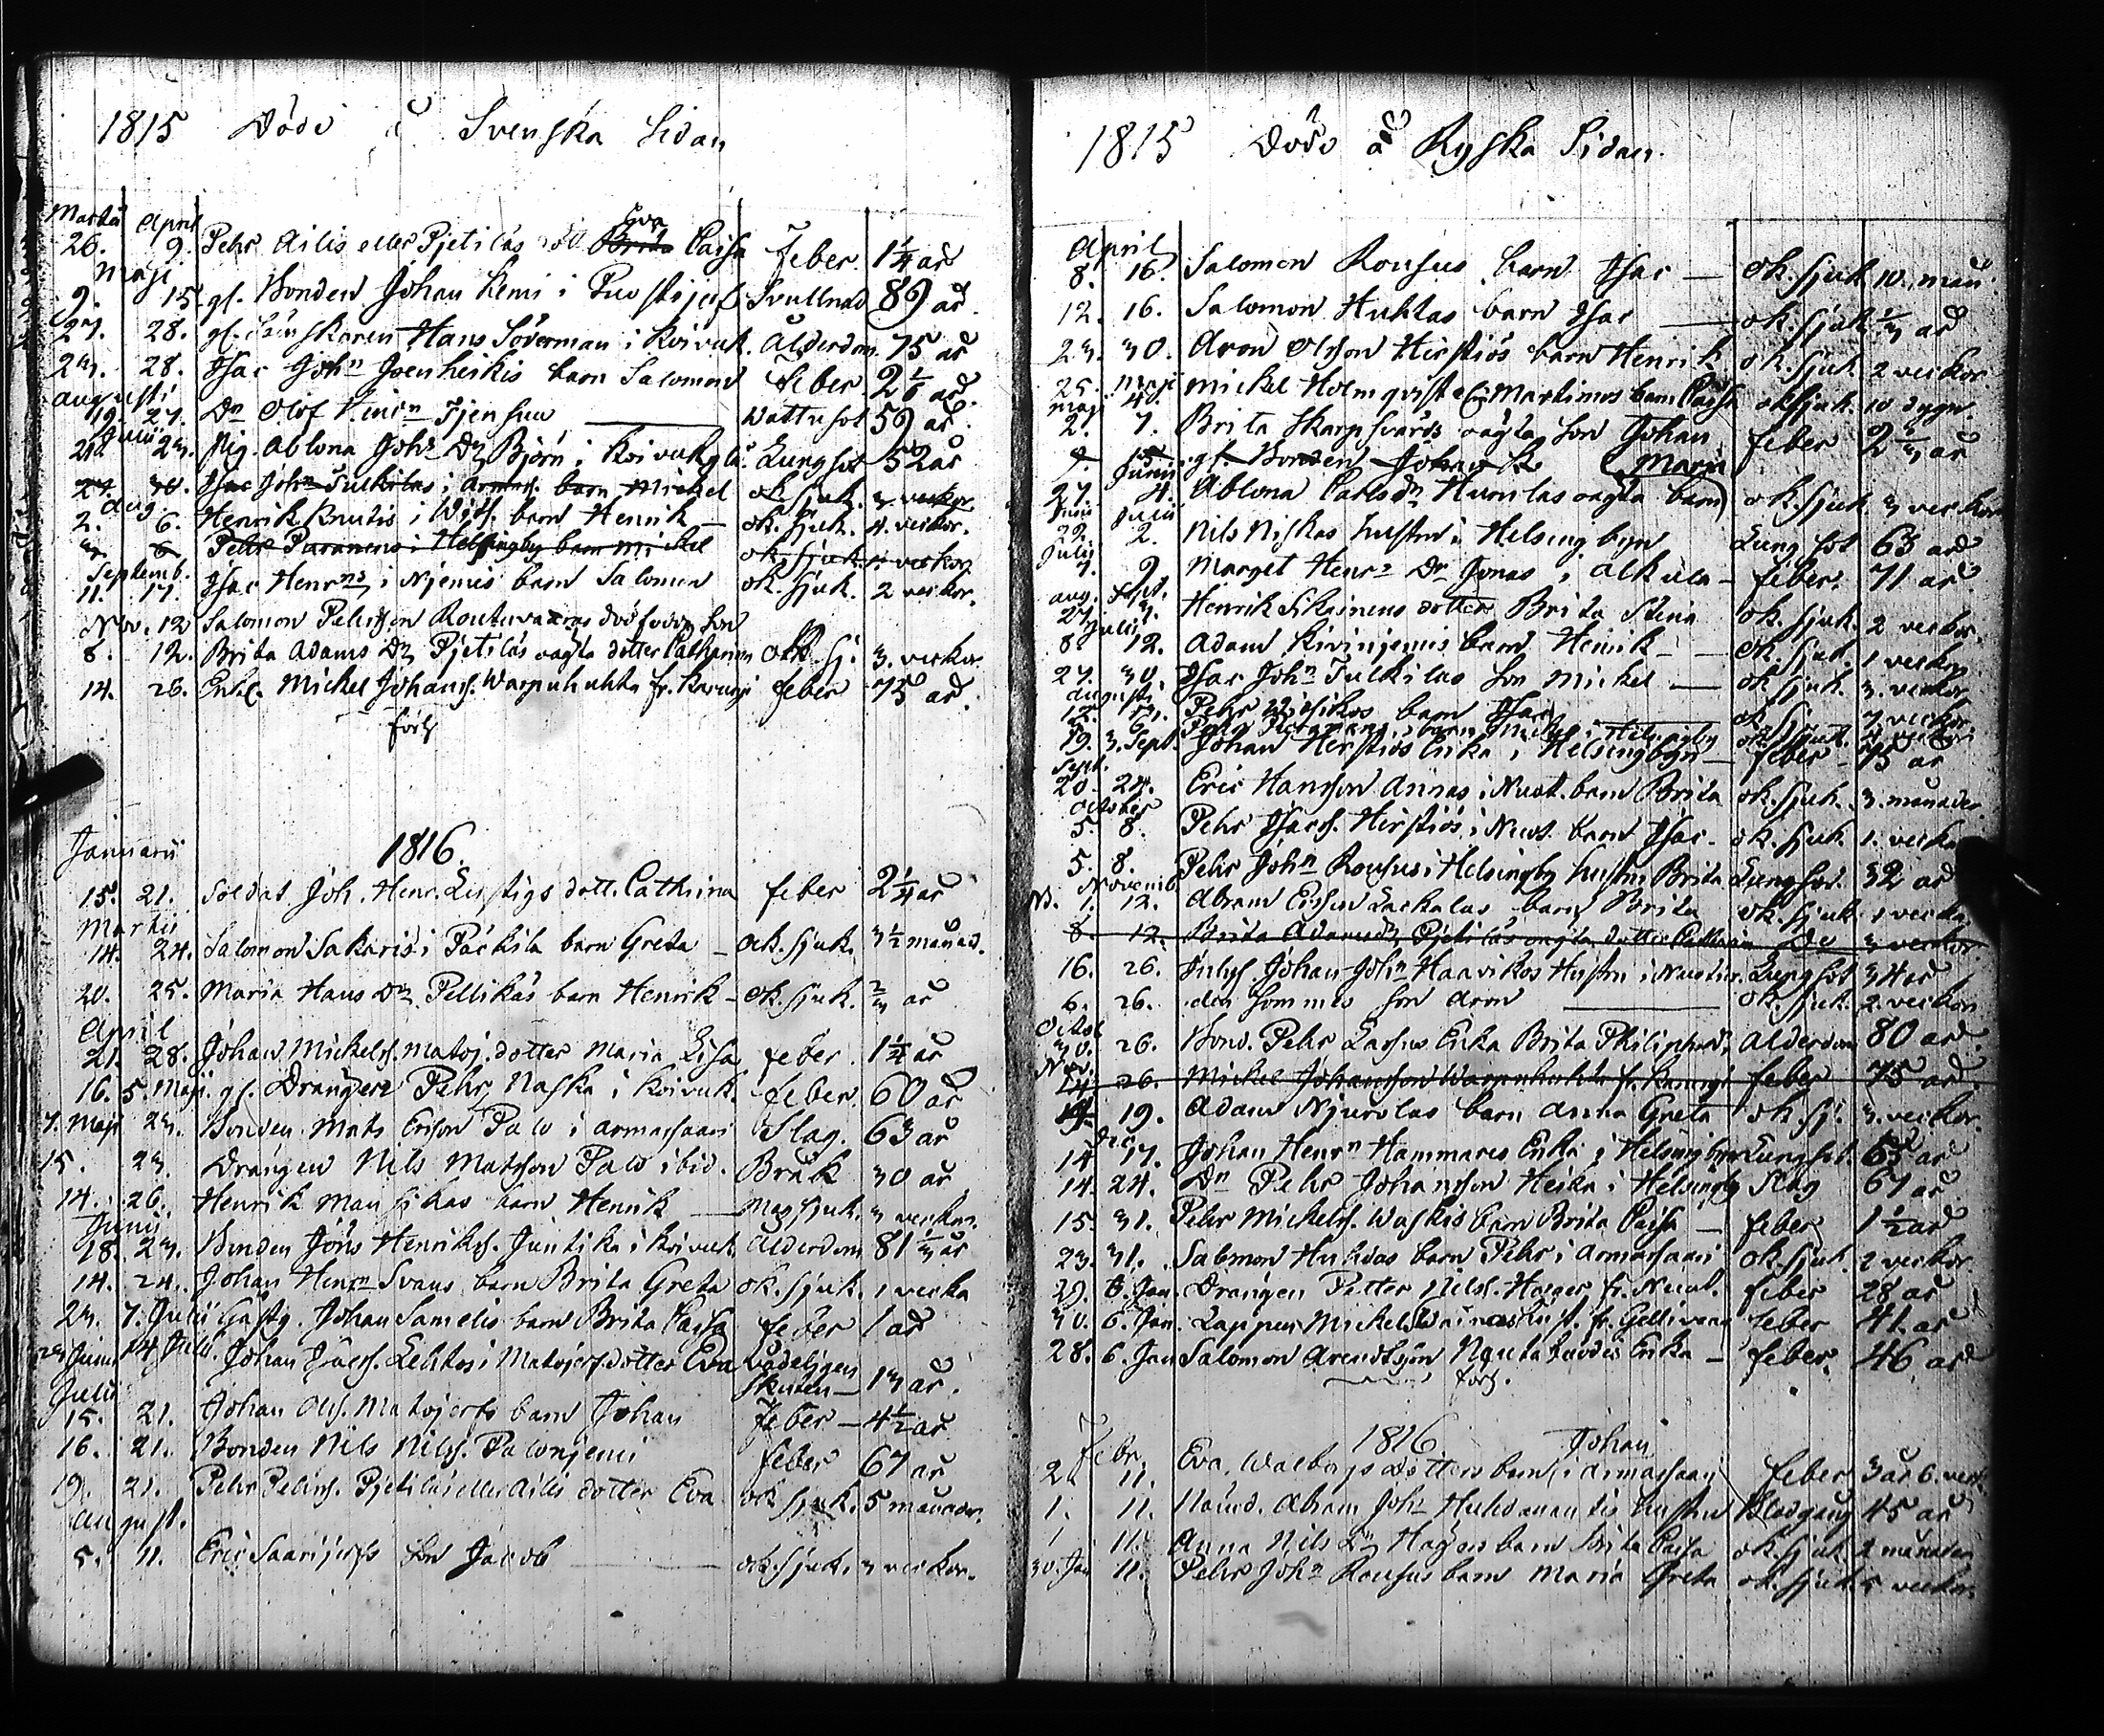 1815 Döde å Svenska Sidan
Martii April
26. 9. Pehr Ailis eller Pjetiläs Eva Brita Caisa feber 1 1/4 år
Maji
9. 15. gl. Bonden Johan Kemi i svullnad 89 år.
27. 28. gl. Hans Söderman i Koivuk. Ålderdom 75 år
23. 28. Isac Johⁿ Joenheikis barn Salomon feber 2 1/6 år.
augusti
19. 27. Dn Olof Henrⁿ Tjensuu Wattusot 59 år.
Junii
21. 23. Pig. Ablona Johⁿ Dr Björn i Koivukylä Lungsot 52 år
27. 30. Isac Johⁿ Tulkilas i Armas. barn Mickel ok. sjuk. 3 veckor
Aug
2. 6. Henrik Knutis i Wits. barn Henrik ok. sjuk. 4. veckor.
6 Pehr Puranens i Helsingby barn Mickel ok. sjuk. veckor
Septemb.
11. 17. Isac Henrns i Njemis barn Salomon ok. sjuk. 2 veckor.
Nov. 12 Salomon Pehrsson Rautuvaaras dödfödda son
8. 12. Brita Adams Dr Pjetiläs oägta dotter Catharina ok sj. 3. veckor.
14. 26. Enkl. Mickel Johans. Warpuluhta fr. Karungi feber 75 år.
forts
1816.
Januarii
15. 21. Soldat Joh. Henr. Lustigs dott. Cathrina feber 2 1/4 år
Martii
14. 24. Salomon Sakaris i Päckilä barn Greta ok. sjuk. 3 1/2 månad.
20. 25. Maria Hans Dr Pellikäs barn Henrik ok. sjuk. 2/3 år
April
21. 28. Johan Mickels. Matoj. dotter Maria Lisa feber. 1 1/4 år
16. 5. Maji. gl. Drängen Pehr Naska i Koivuk. feber. 60 år
7. Maji 23. Bonden Mats Ericson Palo i Armassaari Slag. 63 år
15. 23. Drängen Nils Matsson Palo ibid. Bråk 30 år
14. 26. Henrik Mansikas barn Henrik Mag sjuk. 3 veckor.
Junii
18. 23. Bonden Jöns Henriks. Juntiki i Koivuk. Ålderdom 81 1/3 år
14. 24. Johan Henrn Svans barn Brita Greta ok. sjuk. 1 vecka
23. 7. Julii Gästg. Johan Samelis barn Brita Caisa feber 1 år
23 Junii 14 Julii. Johan Isacs. Lehtos i Matojerfs. dotter Eva Vådeligen skuten 13 år.
Julii
15. 21. Johan Ols. Matojerfs barn Johan feber 4 1/2 år
16. 21. Bonden Nils Nils. Palonjemi feber 67 år
19. 21. Pehr Pehrs. Pjetiläs eller Ailis dotter Eva ok sjuk. 5 månader.
august.
5. 11. Eric Saarijerfs son Jacob ok. sjuk. 3 veckor.
1815 Döde å Ryska Sidan.
April
8. 16. Salomon Rousus barn Isac ok. sjuk 10. mån.
12. 16. Salomon Huhtas barn Isac ok. sjuk 1/3 år
23. 30. Aron Olsson Hirstiös barn Henrik ok. sjuk. 2 veckor
25. Maji Mickel Holmqvist el. Martimos barn Caisa ok sjuk. 10 dygn.
Maji
2. 7. Brita Skarpsvärds oägta son Johan feber 2 2/3 år
7. 15. gl. Bonden Johan K Maria
Junii
27. 4. Ablona Carls dr Hurulas oägta barn ok. sjuk 3 veckor
Junii Julii
22. 2. Nils Niskas hustru i Helsingbyn Lungsot 63 år
Julii
7. 9. Marget Henrs Dr Jonas i Alkula feber. 71 år
aug. Sept.
27. 3. Henrik Sikainens dotter Brita Stina ok. sjuk. 2 veckor.
Julii
8. 12. Adam Kivinjemis barn Henrik ok sjuk. 1 vecka
27. 30. Isac Johⁿ Tulkilas son Mickel ok sjuk. 3. veckor
augusti
Pehr barn Isac
19. 3. Sept. Johan Herstiös Enka i Helsingbyn feber 75 år
Sept.
20. 24. Eric Hansson Annas i Nuot. barn Brita ok. sjuk. 3. månader
October
5. 8. Pehr Isacs. Hirstiös i Nuot. barn Isac. ok. sjuk. 1. vecka
5. 8. Pehr Johⁿ Rousus i Helsingby hustru Brita Lungsot. 32 år
Novemb
1. 12. Abram Ersson Lackalas barn Brita ok. sjuk. 1 vecka
8. 12. Brita Adams dr Pjetiläs oägta dotter Catharin Do 3 veckor.
16. 26. Inhys. Johan Johⁿ Haavikos Hustru i Nuotio. Lungsot 34 år
6. 26. den sammes son Aron ok. sjuk. 2. veckor
Octob
30. 26. Bond. Pehr Lassus Enka Brita Philipsdr. Ålderdom 80 år.
Nov.
14 26. Mickel Johansson Warpuluhta fr. Karungi feber 75 år.
19. Adam Njurolas barn Anna Greta ok. sj. 3. veckor.
Dec
14 17. Johan Henrn Hammares Enka i Helsingbyn Lungsot. 65 år
14. 24. Dn Pehr Johansson Heita i Helsingby Slag 67 år
15. 31. Pehr Mickels. Waskis barn Brita Caisa feber 1 1/2 år
23. 31. Salomon Huhtas barn Pehr i Armassaari ok. sjuk 2 veckor
29. 6. Jan. Drängen Petter Nils. Hager fr. Nuot. feber 28 år
30. 6. Jan. Lappen Mickel hust. fr. Gellivara feber 41. år
28. 6. Jan Salomon Arendtsson Nautapuodis Enka feber. 46 år
forts.
1816
Febr.
2. 11. Eva Walbergs Dotters barn Johan i Armassaari feber 3 år 6. veck.
1. 11. Abram Johⁿ Huhdanantis hustru Blodgång 45 år
11. Anna Nils Dr Hagers barn Brita Caisa ok. sjuk 2 månader
30. Jan 11. Pehr Johⁿ Rousus barn Maria Greta ok. sjuk. 5 veckor.